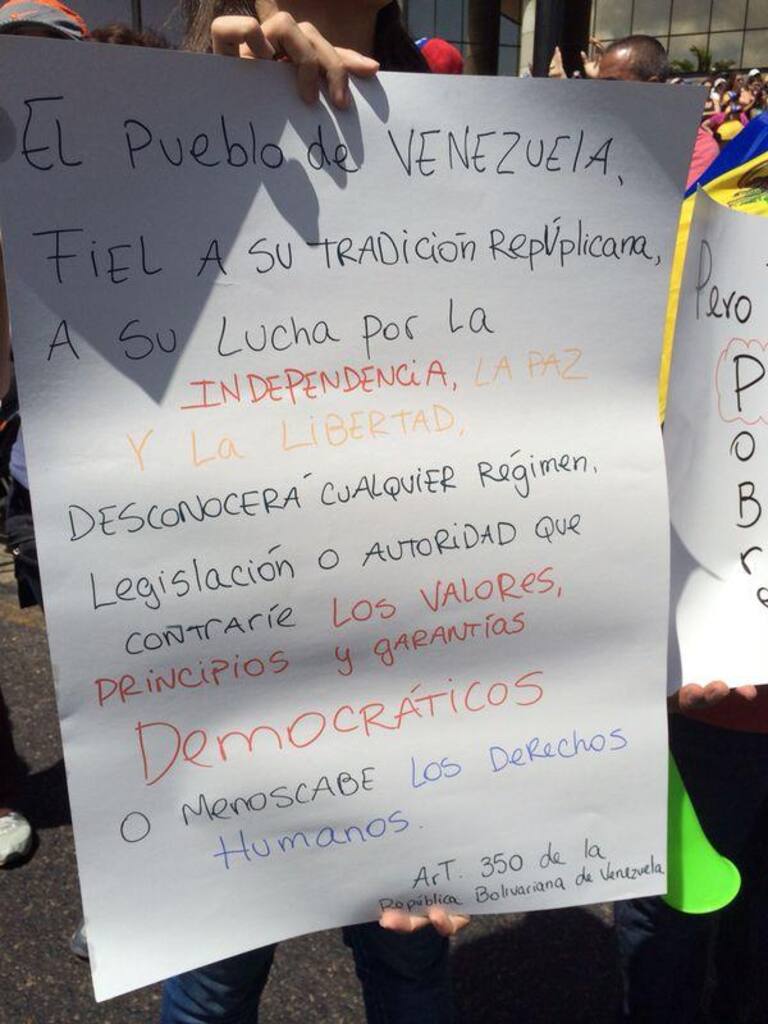 EL Pueblo de VENEZUELA,
FIEL A SU TRADICIÓN RepÚplicana,
A SU LUCHA por LA
INDEPENDENCIA, LA PAZ
Y La LIBERTAD,
DESCONOCERÁ CUALQUIER Régimen,
Legislación o AUTORIDAD que
contraríe LOS VALORES,
PRINCIPIOS y gARANTÍAS
DemOCRÁTICOS
O MenosCABE LOS Derechos
Humanos.
ArT. 350 de la
República Bolivariana de Venezuela
Pero
PoBre